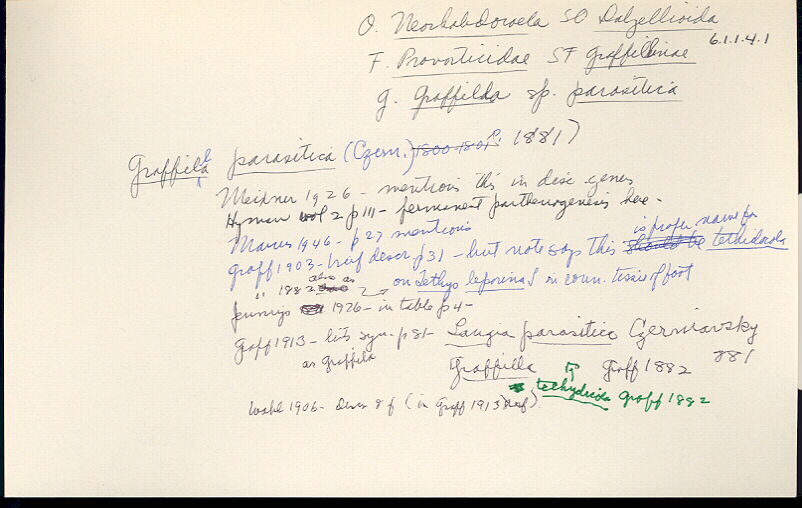 O. Neorhabdocoela SO Dalzellioida
F. Provorticidae SF Graffillinae 6.1.1.4.1
g. Graffilda sp. parasitica
Graffilla parasitica (Czern.) 1800-1801 1881)
Meixner 1926 - mentions this in disc genes
Hyman vol 2 p 111 - permanent parthenogenesis here.
Marcus 1946 - p 27 mentions
is proper name for
Graff 1903 - brief descr p31 - but note says this should be tethidicola
" 1882 also as on Tethys leporina & in conn. tissue of foot
Jennings 1926 - in table p 4 -
Graff 1913 - lists syn. p 81 - Langia parasitica Czerniavsky 881
as graffila Graffilla Graff 1882
tethydicola Graff 1882
Wahl 1906 - Descr & f (in Graff 1913 ref).